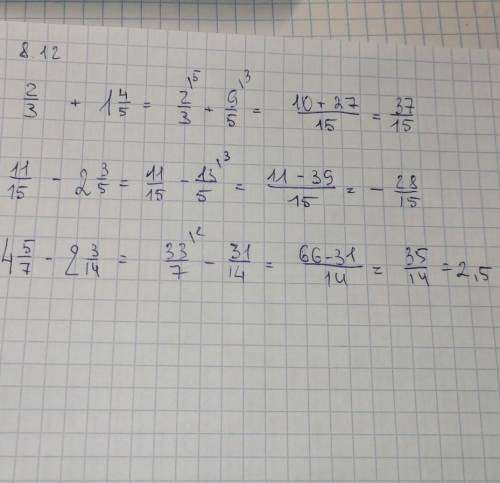 8.12
2/3 + 1 4/5 = 2/3 \5 + 9/5 \3 = (10 + 27)/15 = 37/15
11/15 - 2 3/5 = 11/15 - 13/5 \3 = (11 - 39)/15 = - 28/15
4 5/7 - 2 3/14 = 33/7 \2 - 31/14 = (66 - 31)/14 = 35/14 = 2,5